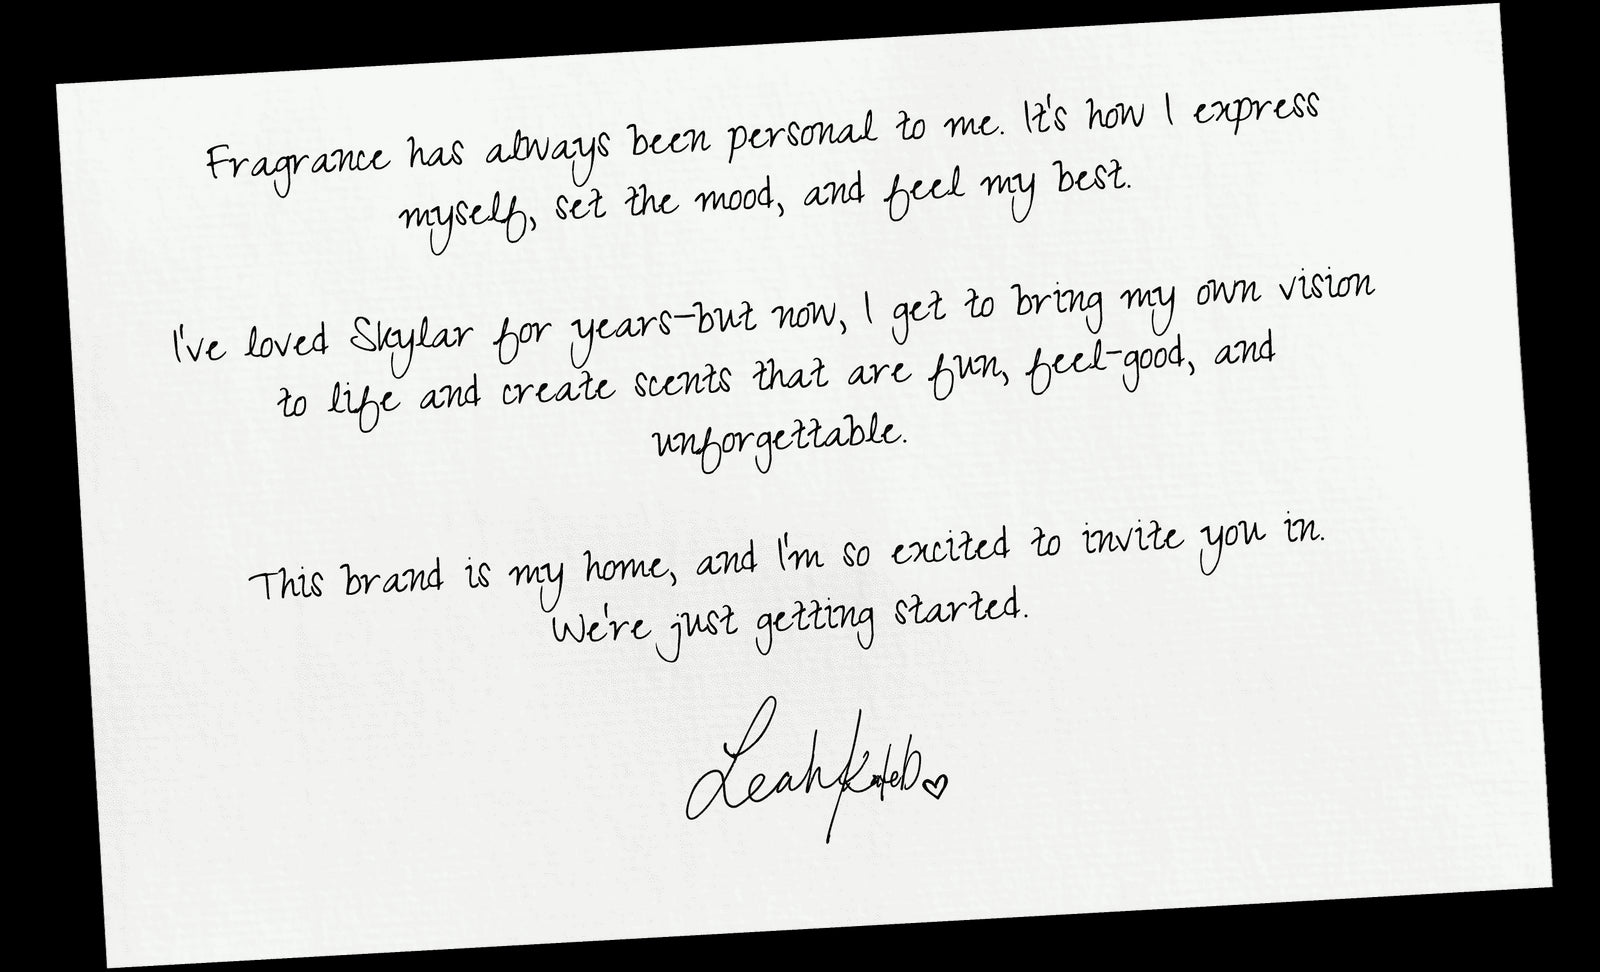 Fragrance has always been personal to me. It's how I express
myself, set the mood, and feel my best.
I've loved Skylar for years—but now, I get to bring my own vision
to life and create scents that are fun, feel-good, and
unforgettable.
This brand is my home, and I'm so excited to invite you in.
We're just getting started.
Leah Kateb♡